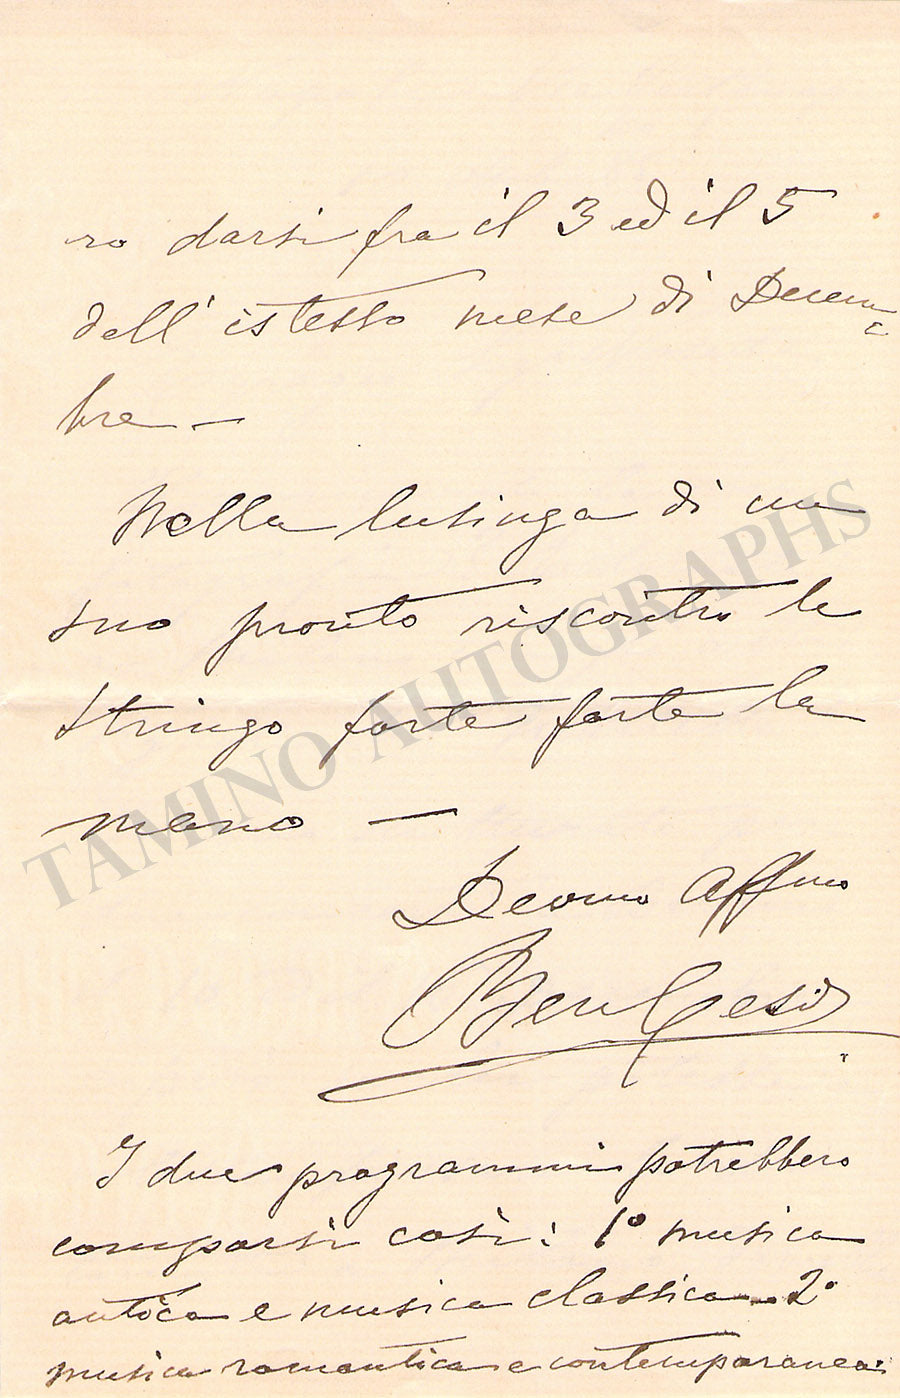 ro darsi fra il 3 ed il 5
dell'istesso mese di Decem=
bre —
Nella lusinga di un
suo pronto riscontro le
stringo forte forte la
mano —
Devmo Affmo
Ben Cesi
I due programmi potrebbero
comporsi così: 1º musica
antica e musica classica — 2º
musica romantica e contemporanea.
TAMINO AUTOGRAPHS